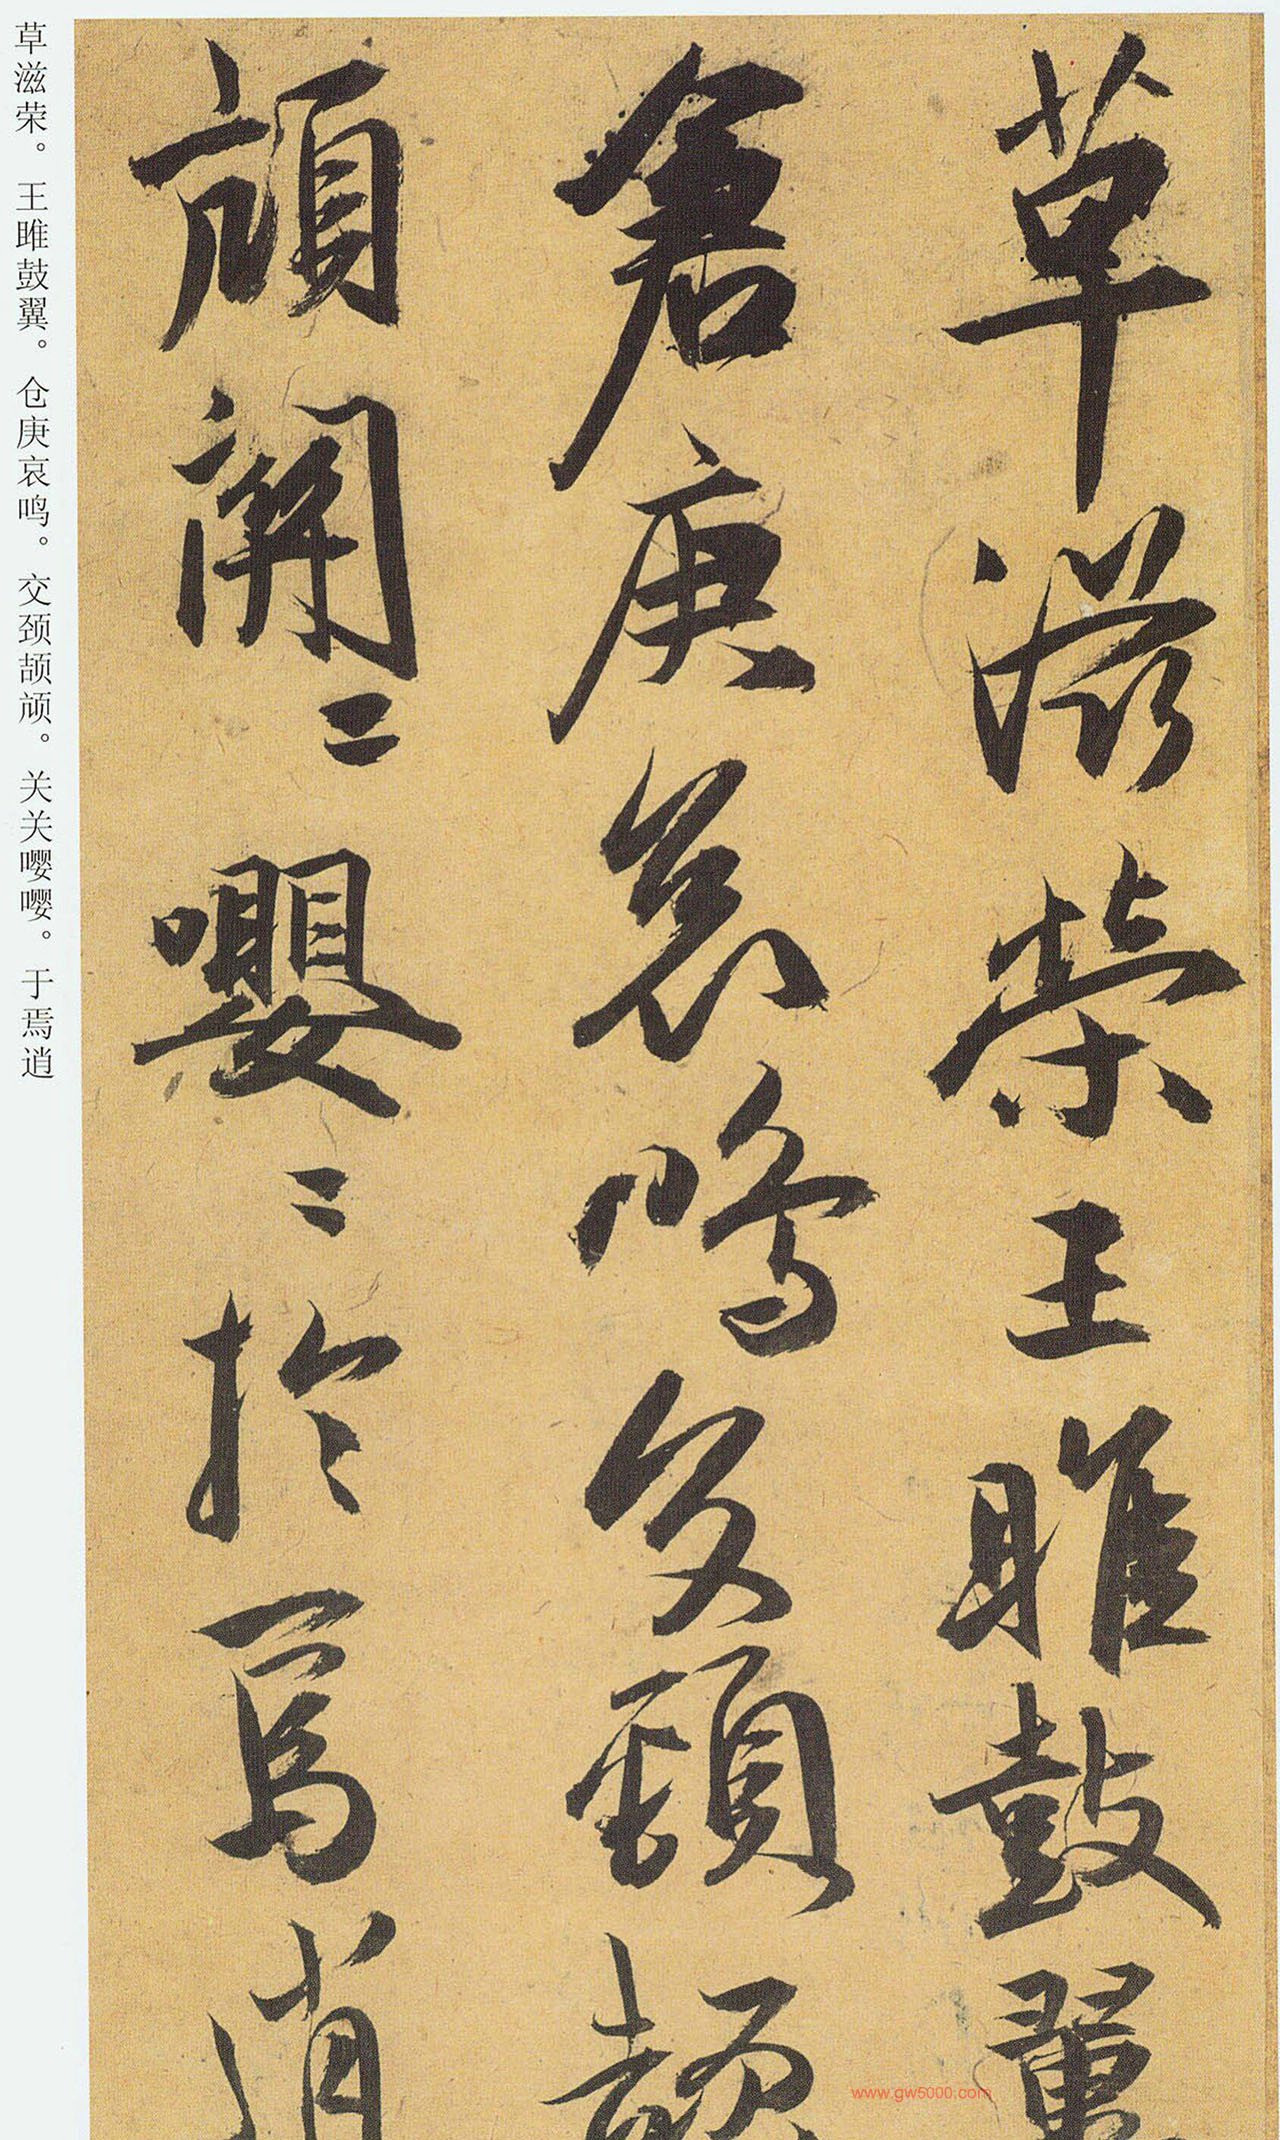 草滋荣王雎鼓翼
仓庚哀鸣交颈颉
颃關〻嚶〻於焉逍
草滋荣。王雎鼓翼。仓庚哀鸣。交颈颉颃。关关嘤嘤。于焉逍
www.gw5000.com